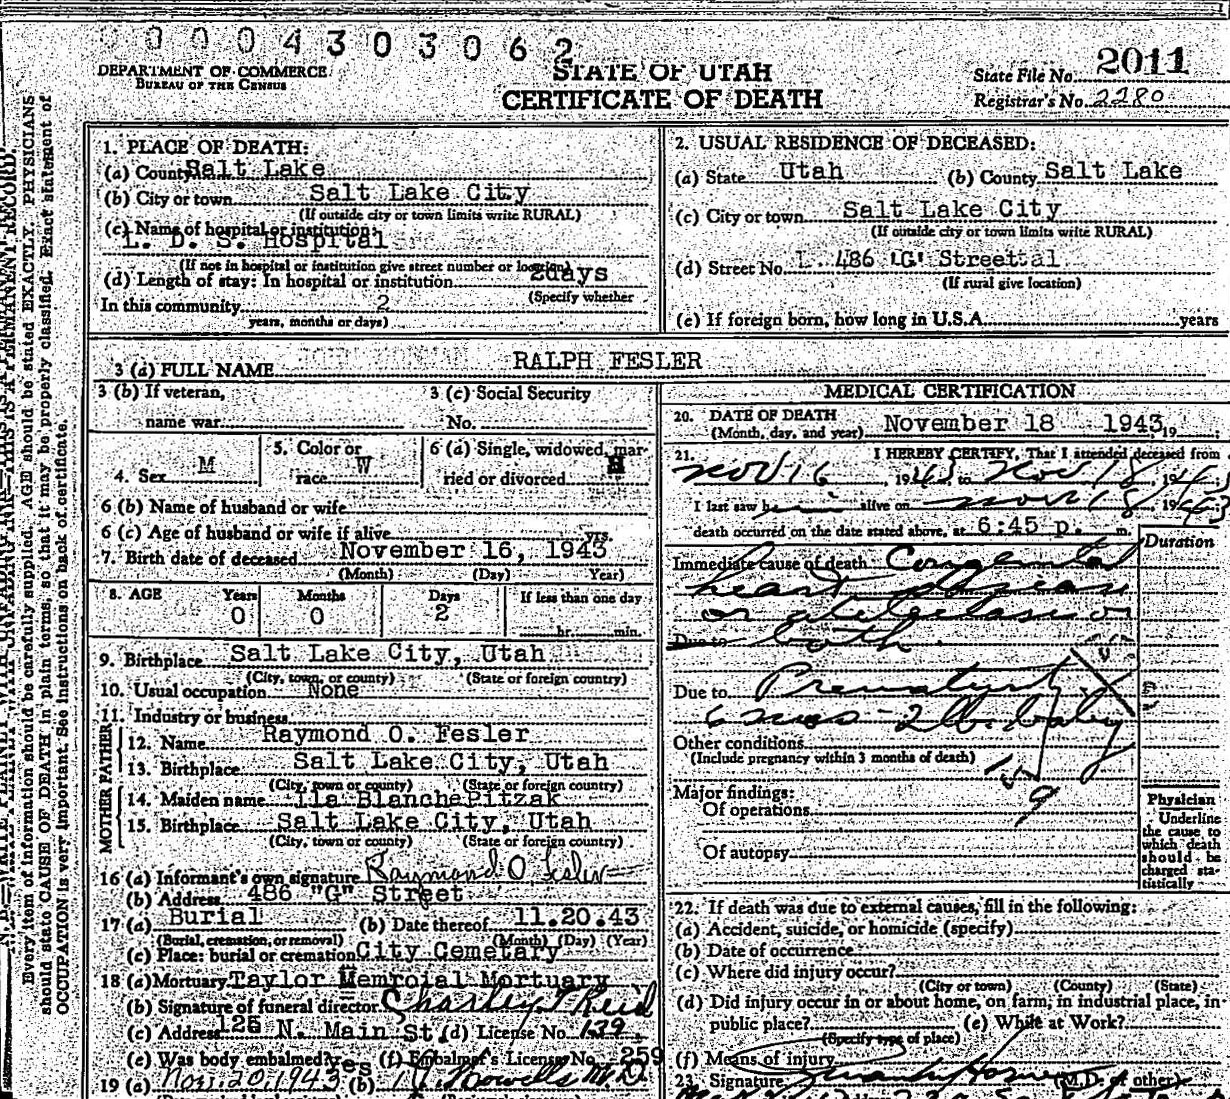 00004303062
DEPARTMENT OF COMMERCE
BUREAU OF THE CENSUS
STATE OF UTAH
CERTIFICATE OF DEATH
State File No. 2011
Registrar's No. 2280
Every item of information should be carefully supplied. AGE should be stated EXACTLY. PHYSICIANS
should state CAUSE OF DEATH in plain terms, so that it may be properly classified. Exact statement of
OCCUPATION is very important. See instructions on back of certificate.
1. PLACE OF DEATH:
(a) County Salt Lake
(b) City or town Salt Lake City
(If outside city or town limits write RURAL)
(c) Name of hospital or institution:
L. D. S. Hospital
(If not in hospital or institution give street number or location)
(d) Length of stay: In hospital or institution 2days
(Specify whether
In this community 2
years, months or days)
2. USUAL RESIDENCE OF DECEASED:
(a) State Utah (b) County Salt Lake
(c) City or town Salt Lake City
(If outside city or town limits write RURAL)
(d) Street No. 486 "G" Street
(If rural give location)
(e) If foreign born, how long in U.S.A. years
3 (a) FULL NAME RALPH FESLER
3 (b) If veteran,
name war
3 (c) Social Security
No.
4. Sex M
5. Color or
race W
6 (a) Single, widowed, mar-
ried or divorced
6 (b) Name of husband or wife
6 (c) Age of husband or wife if alive yrs.
7. Birth date of deceased November 16, 1943
(Month) (Day) Year)
8. AGE Years Months Days If less than one day
0 0 2
hr. min.
9. Birthplace Salt Lake City, Utah
(City, town, or county) (State or foreign country)
10. Usual occupation None
11. Industry or business
FATHER
12. Name Raymond O. Fesler
13. Birthplace Salt Lake City, Utah
(City, town or county) (State or foreign country)
MOTHER
14. Maiden name Ila Blanche Pitzak
15. Birthplace Salt Lake City, Utah
(City, town or county) (State or foreign country)
16 (a) Informant's own signature Raymond O Fesler
(b) Address 486 "G" Street
17 (a) Burial (b) Date thereof 11.20.43
(Burial, cremation, or removal) (Month) (Day) (Year)
(c) Place: burial or cremation City Cemetary
18 (a) Mortuary Taylor Memroial Mortuary
(b) Signature of funeral director Charley T Reid
(c) Address 125 N. Main St. (d) License No. 139
(e) Was body embalmed? yes (f) Embalmer's License No. 259
19 (a) Nov. 20, 1943 (b) M.D.
MEDICAL CERTIFICATION
20. DATE OF DEATH
(Month, day, and year) November 18 1943, 19
21. I HEREBY CERTIFY, That I attended deceased from
Nov 16, 1943 to Nov 18, 1943;
I last saw him alive on Nov 18, 1943
death occurred on the date stated above, at 6:45 p. m.
Duration
Immediate cause of death Congenital
heart disease
or atelectasis or
Due to both
Due to Prematurity
6 mos - 2 lb. baby
Other conditions
(Include pregnancy within 3 months of death)
159
Major findings:
Of operations
Of autopsy
Physician
Underline
the cause to
which death
should be
charged sta-
tistically
22. If death was due to external causes, fill in the following:
(a) Accident, suicide, or homicide (specify)
(b) Date of occurrence
(c) Where did injury occur?
(City or town) (County) (State)
(d) Did injury occur in or about home, on farm, in industrial place, in
public place? (e) While at Work?
(Specify type of place)
(f) Means of injury
23. Signature (M.D. or other)